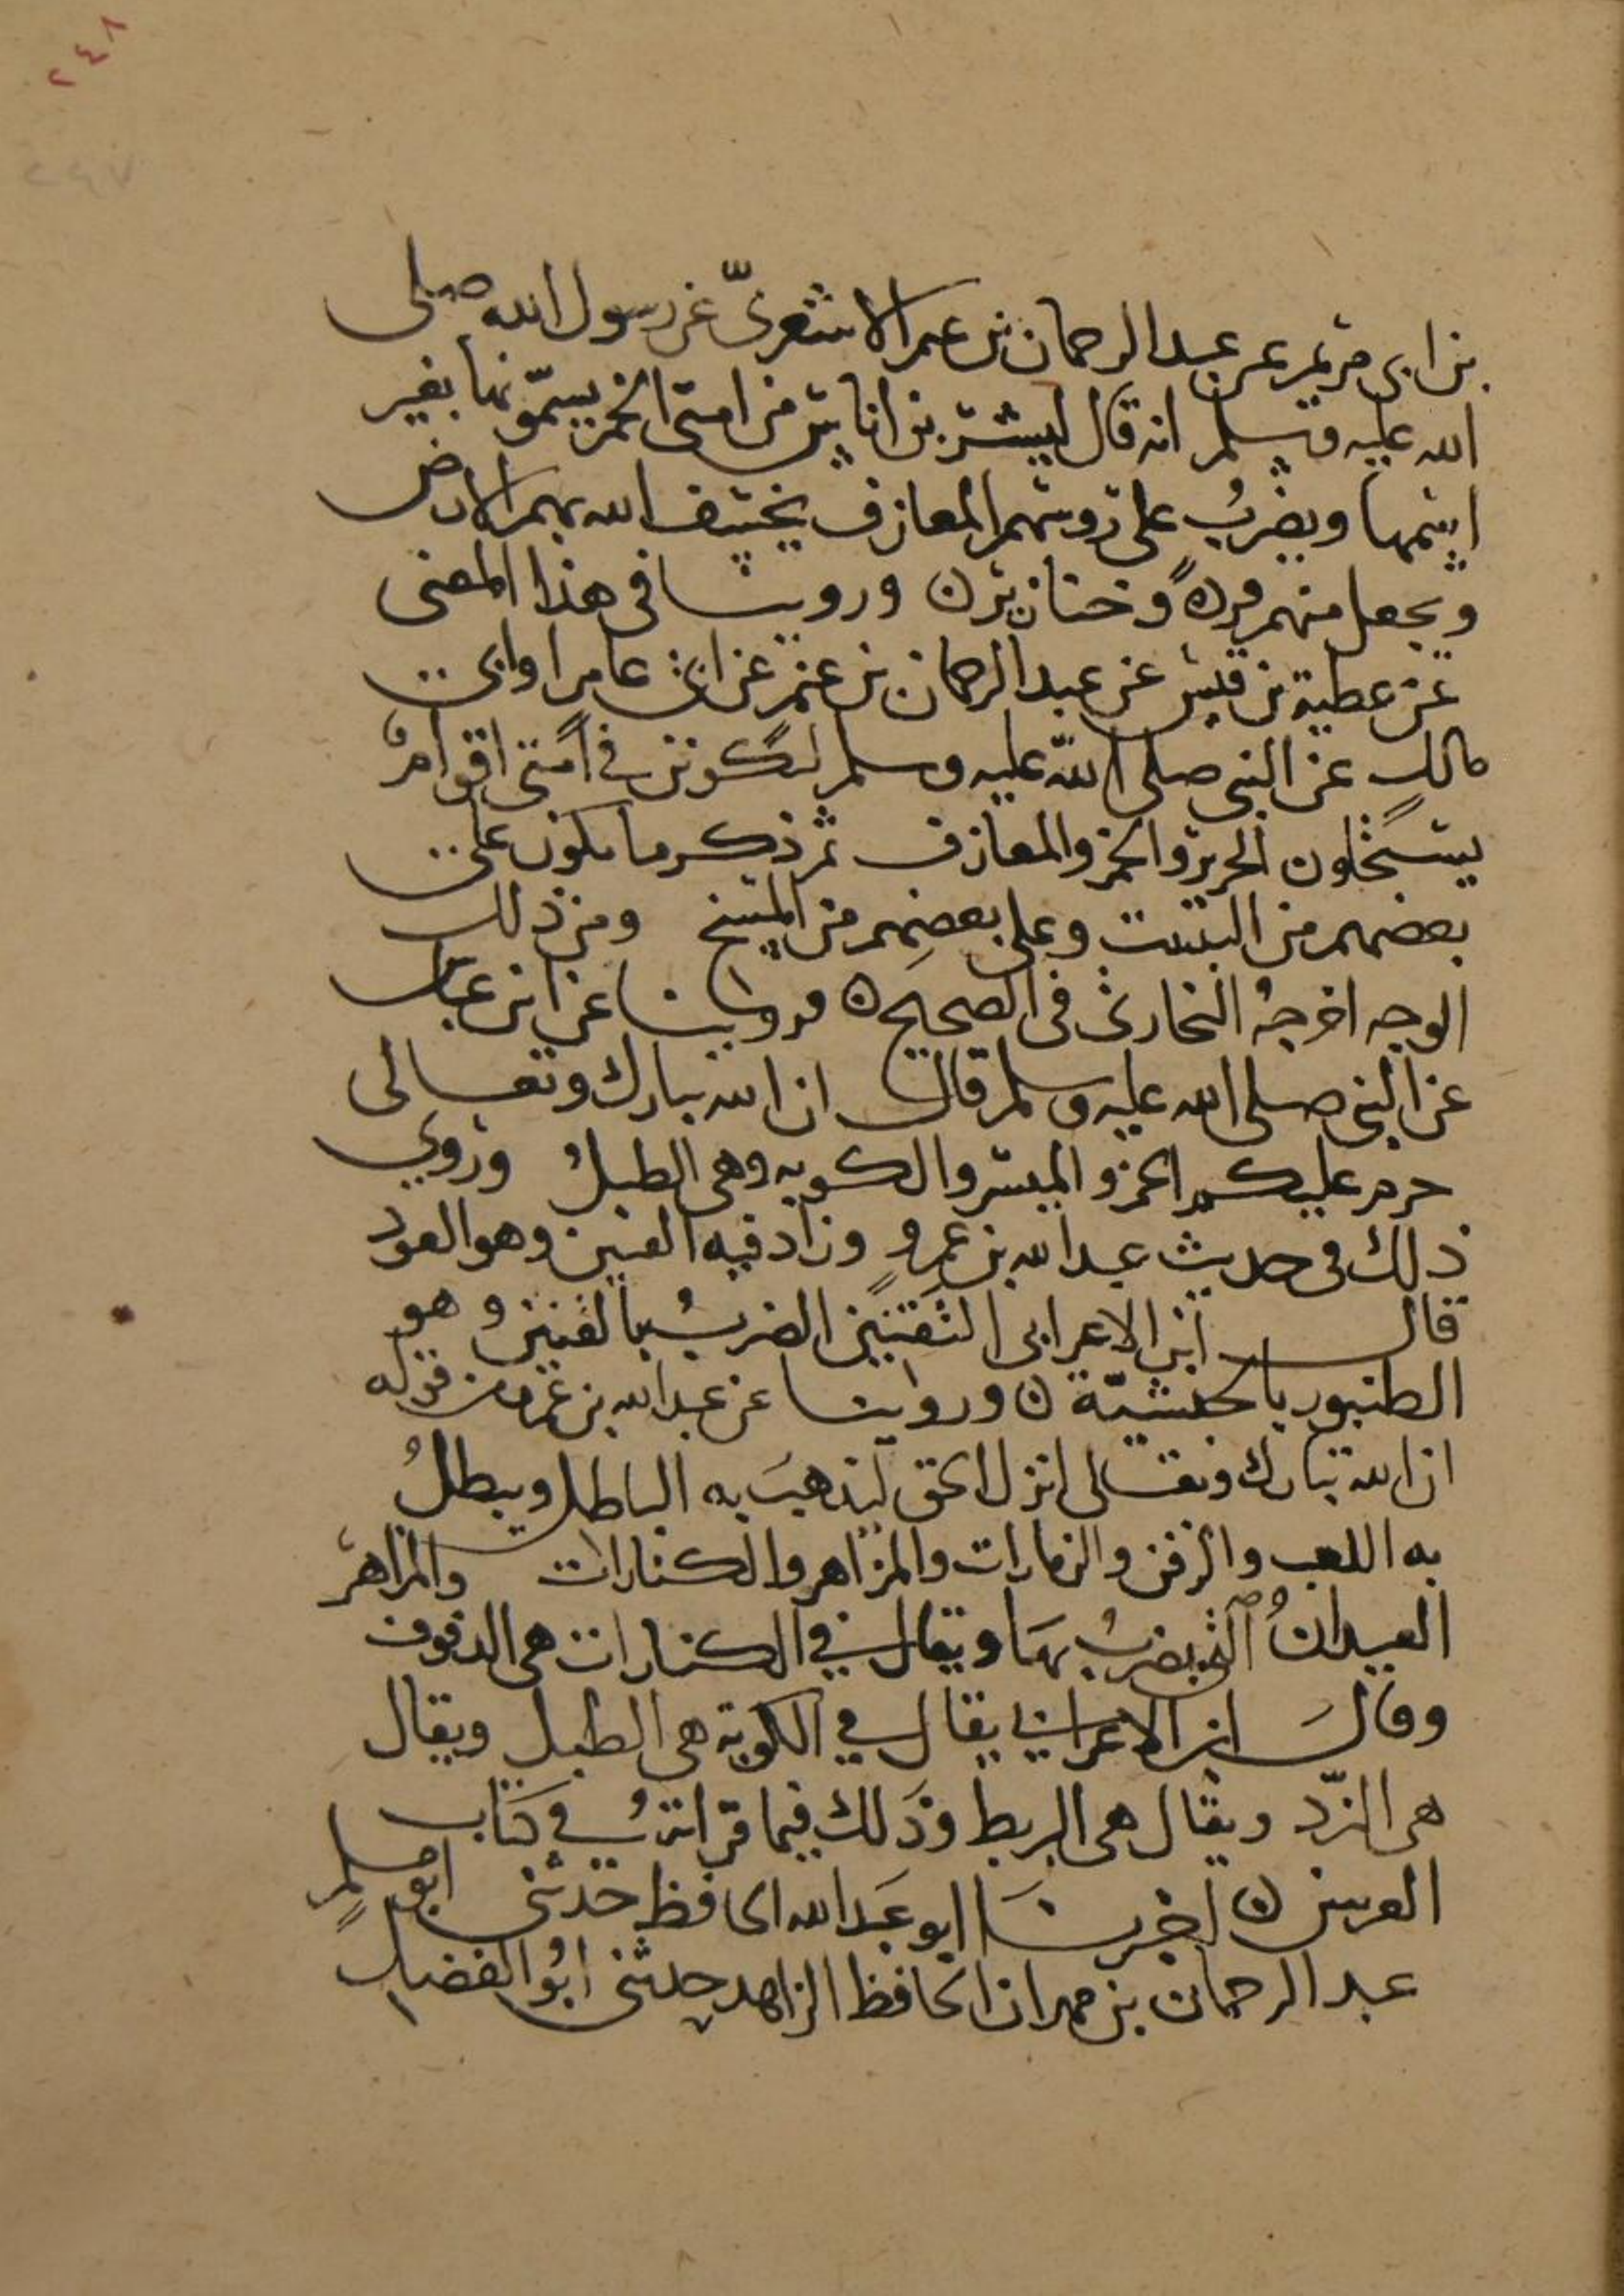 ٢٤٨
٢٤٧
بن ابى مريم عن عبد الرحمان بن غنم الاشعرىّ عن رسول الله صلى
الله عليه وسلم انه قال ليشربن اناس من امتى الخمر يسمّونها بغير
اسمها ويضربُ على رءوسهم المعازف يخسف الله بهم الارض
ويجعل منهم قردةً وخنازير ه وروينا فى هذا المعنى
عن عطية بن قيس عن عبد الرحمان بن غنم عن ابى عامر او ابى
مالكٍ عن النبى صلى اللّه عليه وسلم ليكونن فى امتى اقوامٌ
يستحلون الحرير والخمر والمعازف ثم ذكر ما يكون على
بعضهم من التبييت وعلى بعضِهم من المسخ ومن ذلك
الوجه اخرجهُ البخارى فى الصحيح ه وروينا عن ابن عباس
عن النبى صلى الله عليه وسلم قال ان الله تبارك وتعالى
حرم عليكم الخمر والميسر والكوبه وهى الطبلُ وروى
ذلك فى حديث عبد الله بن عمرٍو وزاد فيه القنين وهو العود
قال ابن الاعرابى التقنين الضربُ بالقنين وهو
الطنبور بالحبشيّة ه وروينا عن عبد الله بن عمرو من قوله
ان الله تبارك وتعالى انزل الحق ليذهبَ به الباطل ويبطلُ
به اللعب والزفن والزمارات والمزاهر والكنارات والمزاهر
العيدانُ التى يضربُ بهَا ويقال فى الكنارات هى الدفوف
وقالَ ابن الاعرابى يقال فى الكوبة هى الطبل ويقال
هى النرد ويقال هى البربط وذلك فيما قراتهُ فى كتاب
الغريبين ه اخبرنَا ابو عبد الله الحافظ حدثنى ابو مسلمٍ
عبد الرحمان بن مهران الحافظ الزاهد حدثنى ابُو الفضل